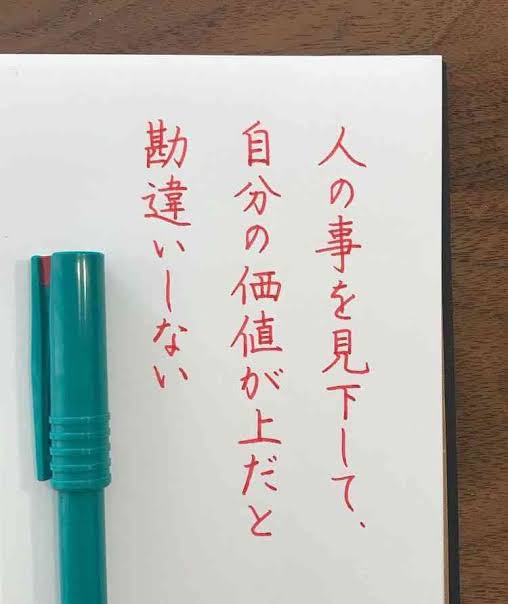 人の事を見下して、
自分の価値が上だと
勘違いしない